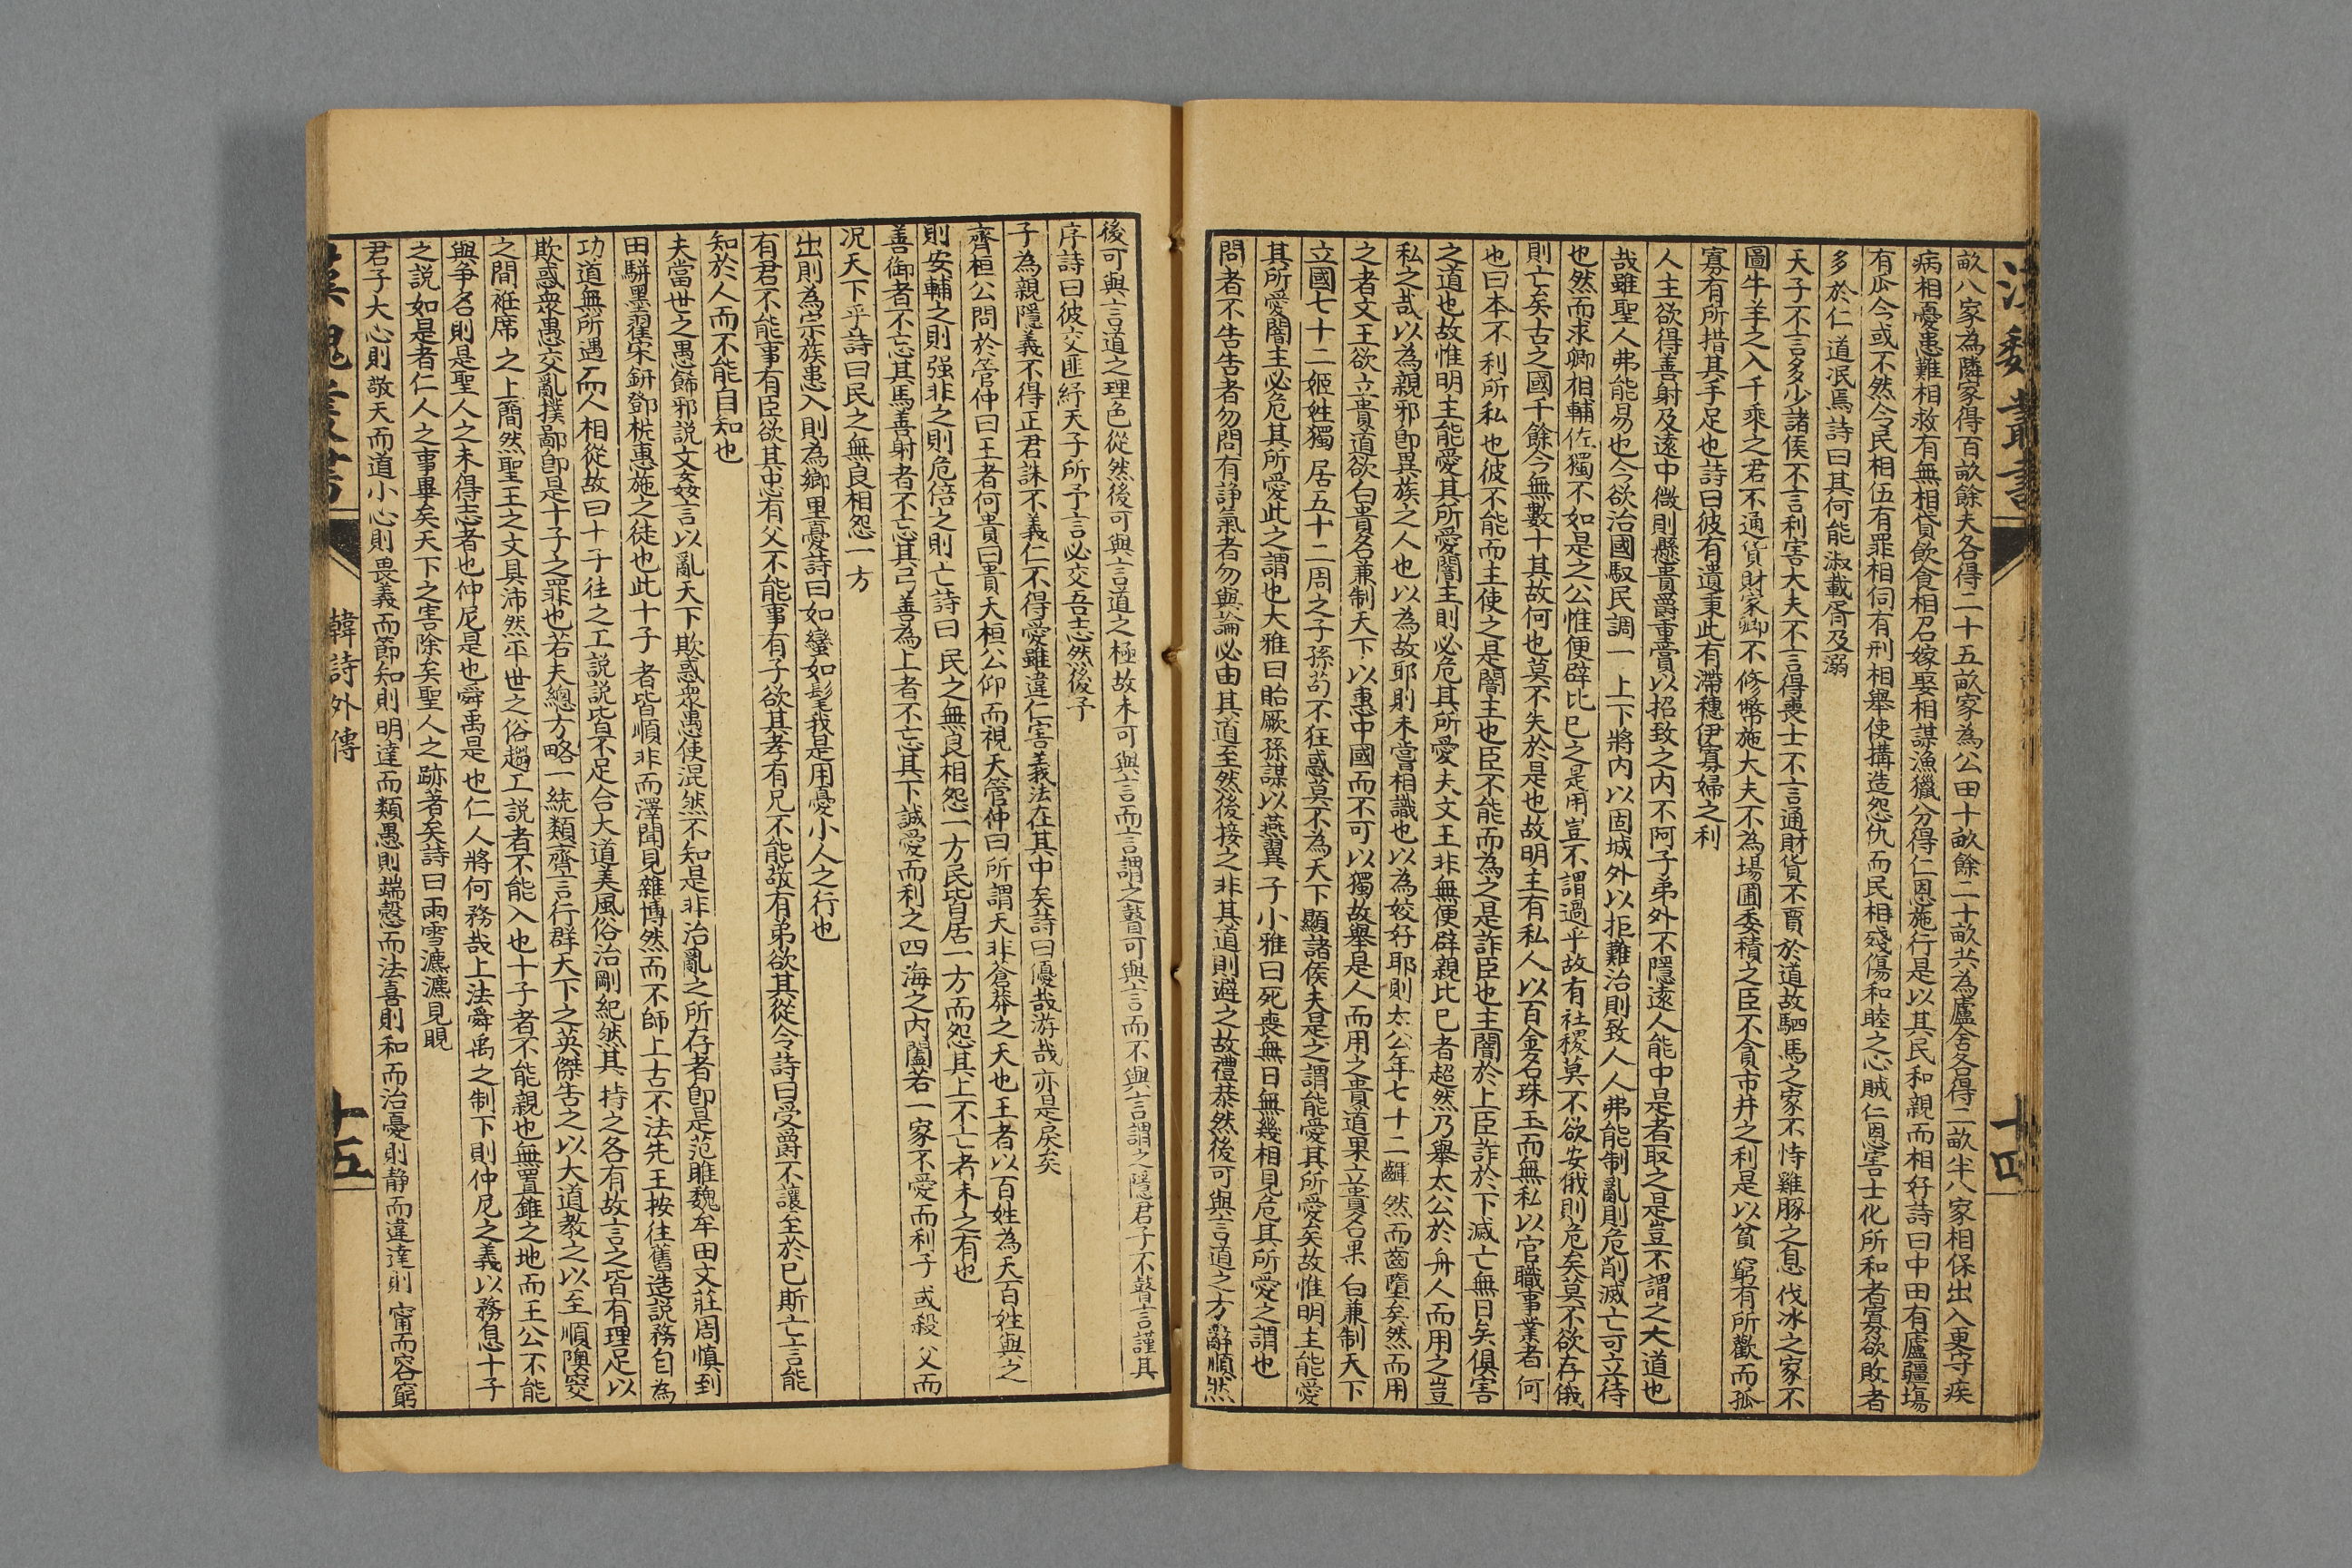 漢魏叢書
十四
畝八家為隣家得百畝餘夫各得二十五畝家為公田十畝餘二十畝共為廬舍各得二畝半八家相保出入更守疾
病相憂患難相救有無相貸飲食相召嫁娶相謀漁獵分得仁恩施行是以其民和親而相好詩曰中田有廬疆埸
有瓜今或不然令民相伍有罪相伺有刑相舉使搆造怨仇而民相殘傷和睦之心賊仁恩害士化所和者寡欲敗者
多於仁道泯焉詩曰其何能淑載胥及溺
天子不言多少諸侯不言利害大夫不言得喪士不言通財貨不賈於道故駟馬之家不恃雞豚之息伐冰之家不
圖牛羊之入千乘之君不通貨財冢卿不修幣施大夫不為場圃委積之臣不貪市井之利是以貧窮有所歡而孤
寡有所措其手足也詩曰彼有遺秉此有滯穗伊寡婦之利
人主欲得善射及遠中微則懸貴爵重賞以招致之內不阿子弟外不隱遠人能中是者取之是豈不謂之大道也
哉雖聖人弗能易也今欲治國馭民調一上下將內以固城外以拒難治則致人人弗能制亂則危削滅亡可立待
也然而求卿相輔佐獨不如是之公惟便辟比己之是用豈不謂過乎故有社稷莫不欲安俄則危矣莫不欲存俄
則亡矣古之國千餘今無數十其故何也莫不失於是也故明主有私人以百金名珠玉而無私以官職事業者何
也曰本不利所私也彼不能而主使之是闇主也臣不能而為之是詐臣也主闇於上臣詐於下滅亡無日矣俱害
之道也故惟明主能愛其所愛闇主則必危其所愛夫文王非無便辟親比己者超然乃舉太公於舟人而用之豈
私之哉以為親邪卽異族之人也以為故耶則未嘗相識也以為姣好耶則太公年七十二齳然而齒墮矣然而用
之者文王欲立貴道欲白貴名兼制天下以惠中國而不可以獨故舉是人而用之貴道果立貴名果白兼制天下
立國七十二姬姓獨居五十二周之子孫苟不狂惑莫不為天下顯諸侯夫是之謂能愛其所愛矣故惟明主能愛
其所愛闇主必危其所愛此之謂也大雅曰貽厥孫謀以燕翼子小雅曰死喪無日無幾相見危其所愛之謂也
問者不告告者勿問有諍氣者勿與論必由其道至然後接之非其道則避之故禮恭然後可與言道之方辭順然
後可與言道之理色從然後可與言道之極故未可與言而言謂之瞽可與言而不與言謂之隱君子不瞽言謹其
序詩曰彼交匪紓天子所予言必交吾志然後予
子為親隱義不得正君誅不義仁不得愛雖違仁害義法在其中矣詩曰優哉游哉亦是戾矣
齊桓公問於管仲曰王者何貴曰貴天桓公仰而視天管仲曰所謂天非蒼莽之天也王者以百姓為天百姓與之
則安輔之則强非之則危倍之則亡詩曰民之無良相怨一方民皆居一方而怨其上不亡者未之有也
善御者不忘其馬善射者不忘其弓善為上者不忘其下誠愛而利之四海之內闔若一家不愛而利子或殺父而
况天下乎詩曰民之無良相怨一方
出則為宗族患入則為鄉里憂詩曰如蠻如髦我是用憂小人之行也
有君不能事有臣欲其忠有父不能事有子欲其孝有兄不能敬有弟欲其從令詩曰受爵不讓至於己斯亡言能
知於人而不能自知也
夫當世之愚飾邪説文姦言以亂天下欺惑衆愚使混然不知是非治亂之所存者卽是范雎魏牟田文莊周慎到
田駢墨翟宋鈃鄧析惠施之徒也此十子者皆順非而澤聞見雜博然而不師上古不法先王按往舊造説務自為
功道無所遇而人相從故曰十子者之工説説皆不足合大道美風俗治剛紀然其持之各有故言之皆有理足以
欺惑衆愚交亂撲鄙卽是十子之罪也若夫總方略一統類齊言行群天下之英傑告之以大道教之以至順隩窔
之間衽席之上簡然聖王之文具沛然平世之俗趨工説者不能入也十子者不能親也無置錐之地而王公不能
與爭名則是聖人之未得志者也仲尼是也舜禹是也仁人將何務哉上法舜禹之制下則仲尼之義以務息十子
之説如是者仁人之事畢矣天下之害除矣聖人之跡著矣詩曰雨雪瀌瀌見晛
君子大心則敬天而道小心則畏義而節知則明達而類愚則端慤而法喜則和而治憂則静而違達則甯而容窮
漢魏叢書
韓詩外傳
十五